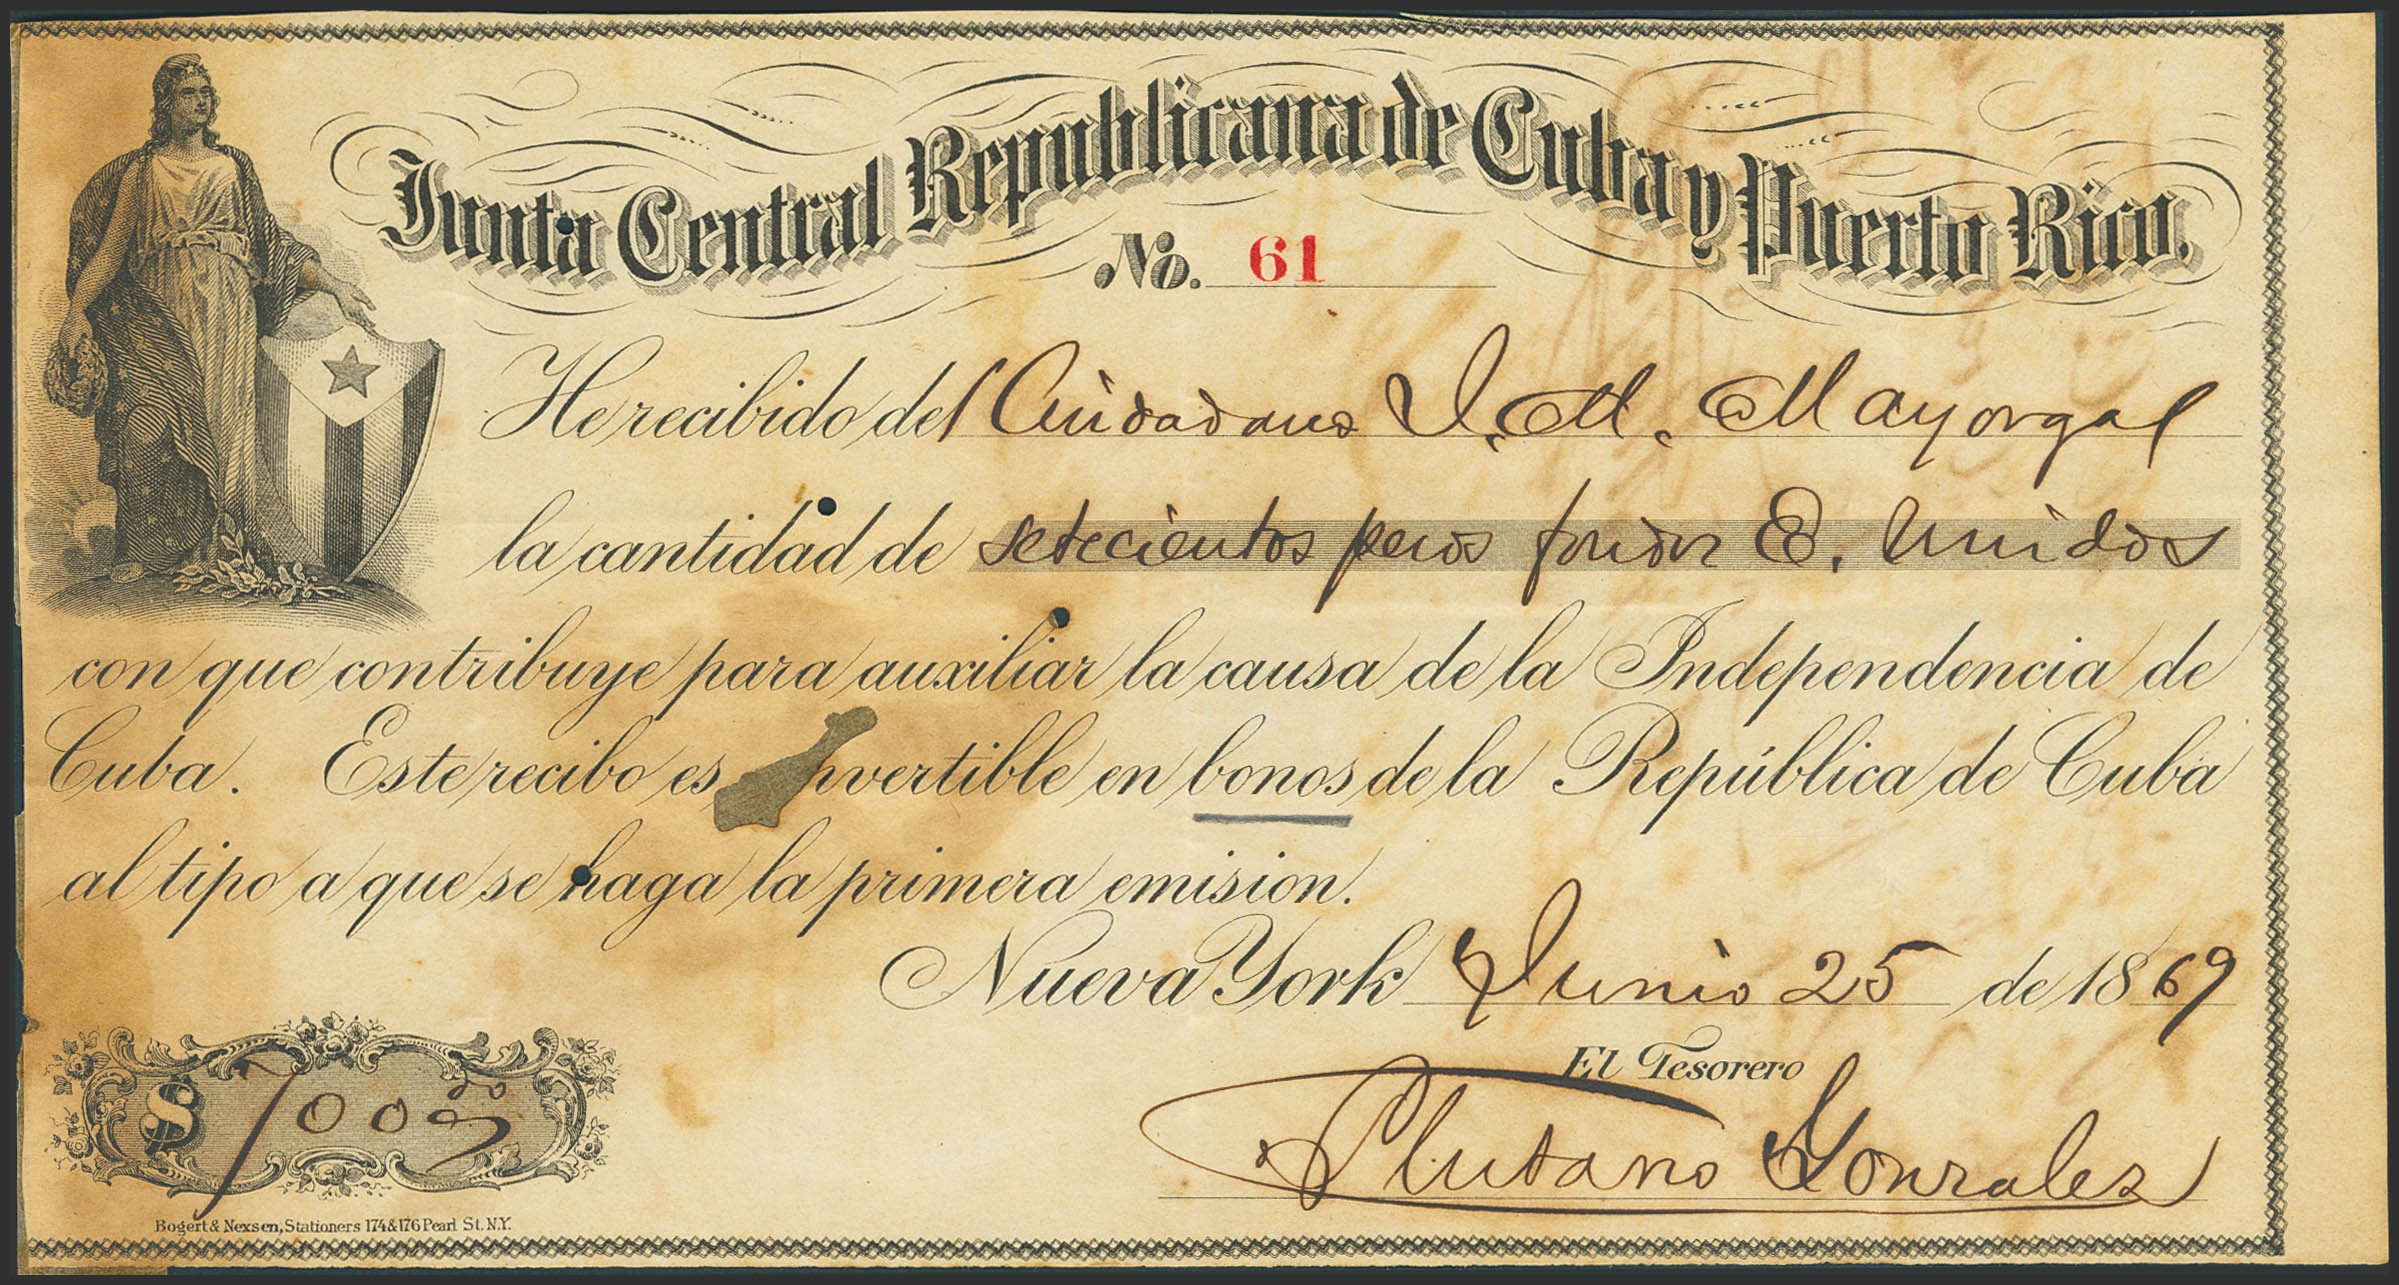 Junta Central Republicana de Cuba y Puerto Rico.
No. 61
He recibido del Ciudadano J. M. Mayorga
la cantidad de setecientos pesos fondos E. Unidos
con que contribuye para auxiliar la causa de la Independencia de
Cuba. Este recibo es nvertible en bonos de la República de Cuba
al tipo a que se haga la primera emision.
Nueva York Junio 25 de 1869
El Tesorero
$ 700 00
Plutarco Gonzales
Bogert & Nexsen, Stationers 174 & 176 Pearl St. N.Y.